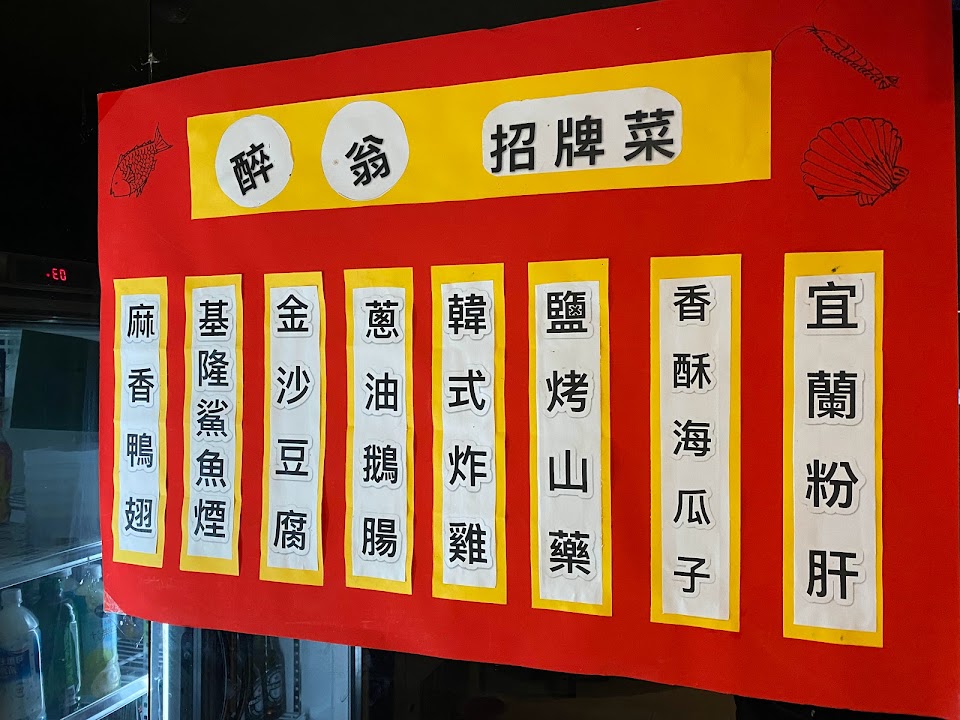 醉翁 招牌菜
宜蘭粉肝
香酥海瓜子
鹽烤山藥
韓式炸雞
蔥油鵝腸
金沙豆腐
基隆鯊魚煙
麻香鴨翅